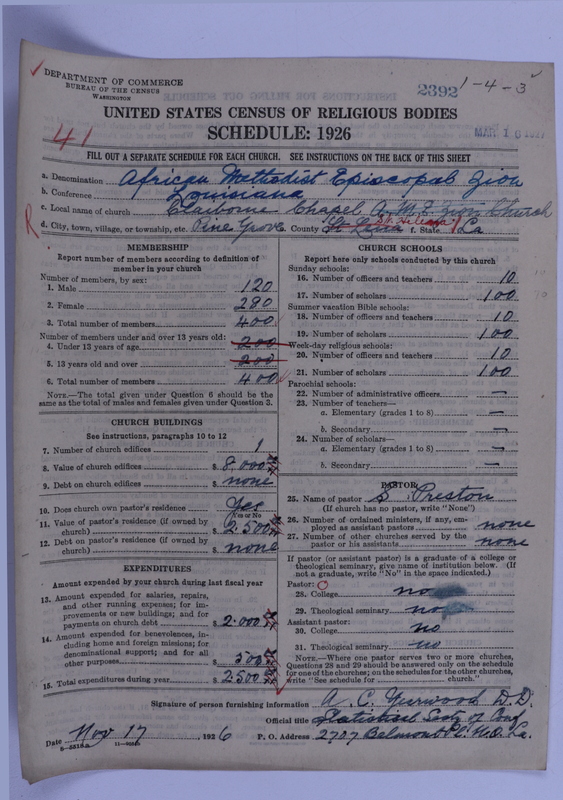 DEPARTMENT OF COMMERCE
BUREAU OF THE CENSUS
WASHINGTON
2392 1-4-3
UNITED STATES CENSUS OF RELIGIOUS BODIES
SCHEDULE: 1926
41
FILL OUT A SEPARATE SCHEDULE FOR EACH CHURCH. SEE INSTRUCTIONS ON THE BACK OF THIS SHEET
a. Denomination African Methodist Episcopal Zion
b. Conference Louisiana
c. Local name of church Claiborne Chapel A. M. E. Zion Church
R d. City, town, village, or township, etc. Pine Grove County St. Helena f. State La
MEMBERSHIP
Report number of members according to definition of member in your church
Number of members, by sex:
1. Male 120
2. Female 280
3. Total number of members 400
Number of members under and over 13 years old:
4. Under 13 years of age 200
5. 13 years old and over 200
6. Total number of members 400
NOTE.—The total given under Question 6 should be the same as the total of males and females given under Question 3.
CHURCH BUILDINGS
See instructions, paragraphs 10 to 12
7. Number of church edifices 1
8. Value of church edifices $ 8,000
9. Debt on church edifices $ none
10. Does church own pastor's residence Yes
Yes or No
11. Value of pastor's residence (if owned by church) $ 2500
12. Debt on pastor's residence (if owned by church) $ none
EXPENDITURES
Amount expended by your church during last fiscal year
13. Amount expended for salaries, repairs, and other running expenses; for improvements or new buildings; and for payments on church debt $ 2.000
14. Amount expended for benevolences, including home and foreign missions; for denominational support; and for all other purposes $ 500
15. Total expenditures during year $ 2500
CHURCH SCHOOLS
Report here only schools conducted by this church
Sunday schools:
16. Number of officers and teachers 10
17. Number of scholars 100
Summer vacation Bible schools:
18. Number of officers and teachers 10
19. Number of scholars 100
Week-day religious schools:
20. Number of officers and teachers 10
21. Number of scholars 100
Parochial schools:
22. Number of administrative officers —
23. Number of teachers—
a. Elementary (grades 1 to 8) —
b. Secondary —
24. Number of scholars—
a. Elementary (grades 1 to 8) —
b. Secondary —
PASTOR
25. Name of pastor S Preston
(If church has no pastor, write "None")
26. Number of ordained ministers, if any, employed as assistant pastors none
27. Number of other churches served by the pastor or his assistants none
If pastor (or assistant pastor) is a graduate of a college or theological seminary, give name of institution below. (If not a graduate, write "No" in the space indicated.)
Pastor:
28. College no
29. Theological seminary no
Assistant pastor:
30. College no
31. Theological seminary no
NOTE.—Where one pastor serves two or more churches, Questions 28 and 29 should be answered only on the schedule for one of the churches; on the schedules for the other churches, write "See schedule for church."
Signature of person furnishing information A. C. D.D.
Official title of Conf
Date Nov 17, 1926 P. O. Address 2707 Belmont Pl. N.O. La.